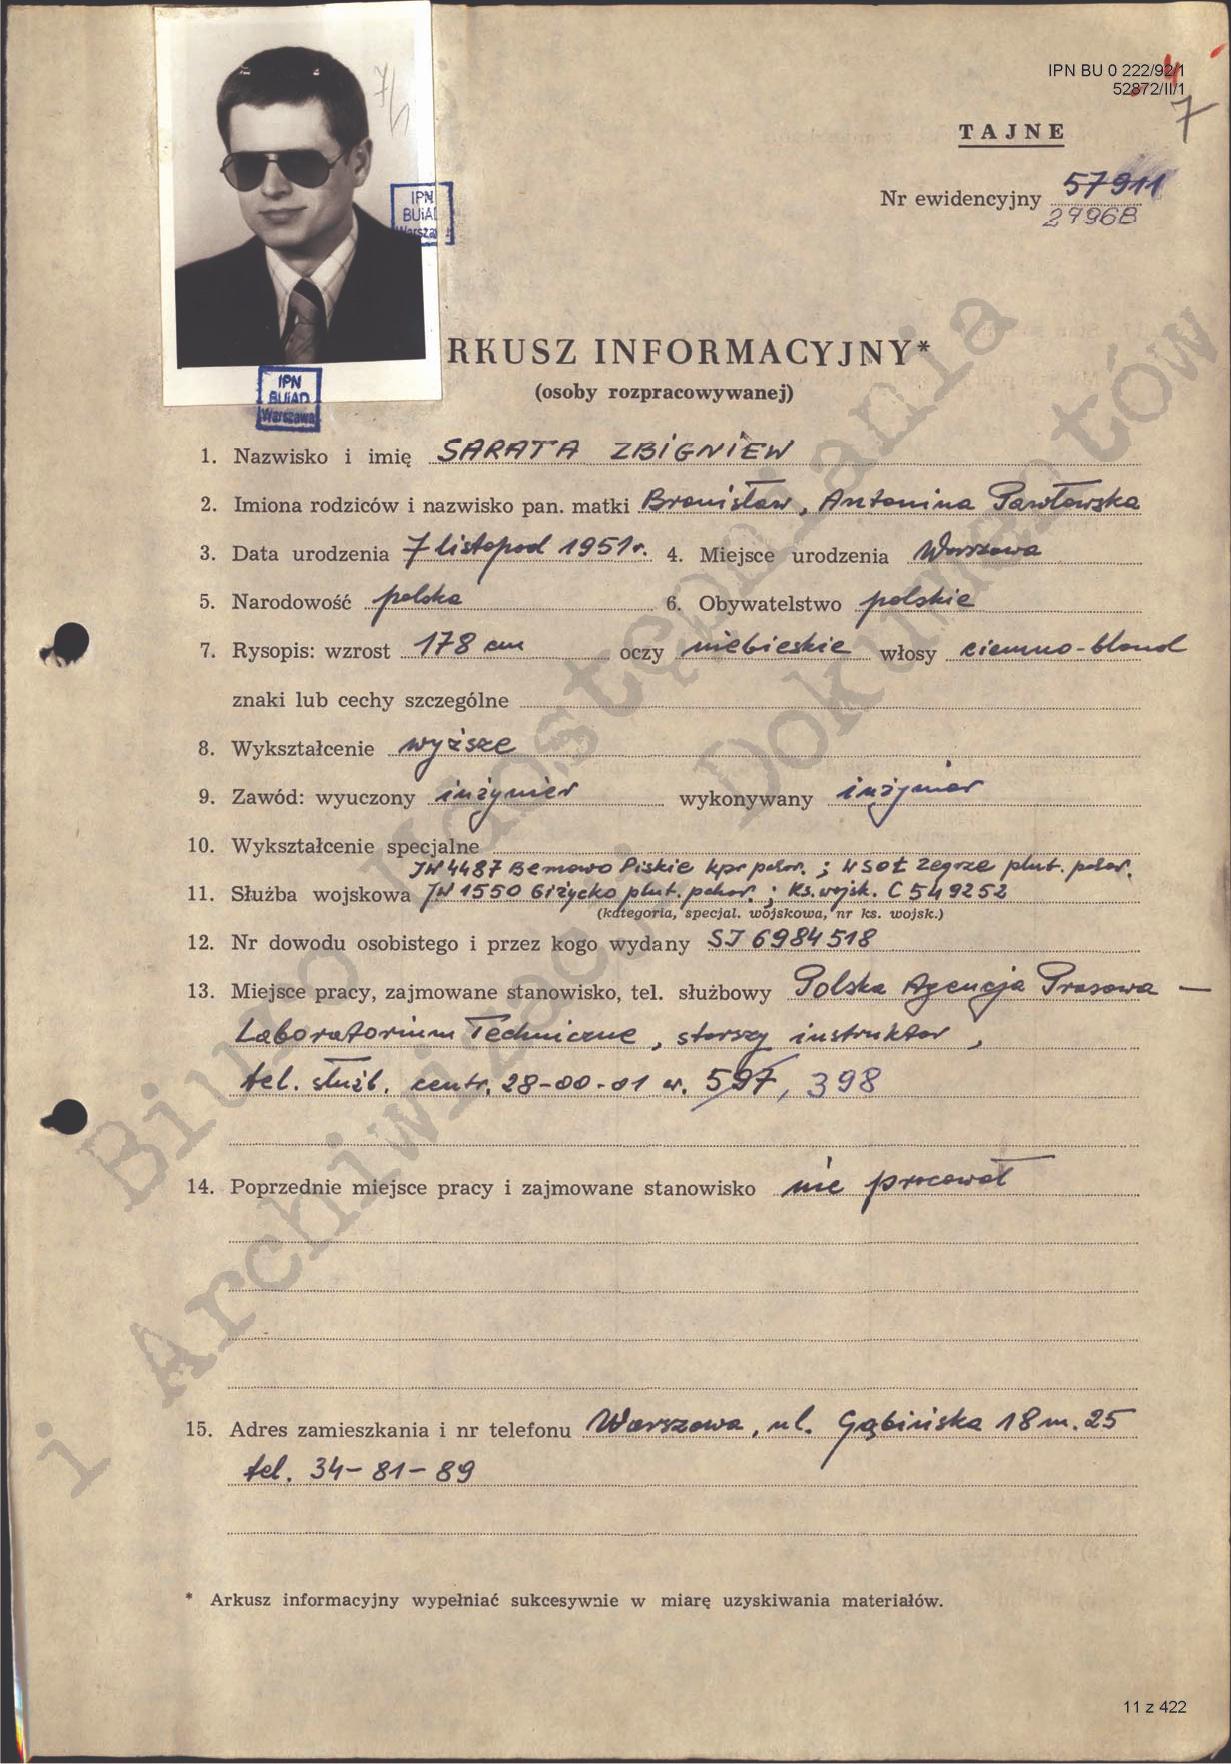 IPN BU 0 222/92/1
4
52872/II/1
7
TAJNE
Nr ewidencyjny 57911
27968
7/1
IPN
BUiAD
Warszawa
RKUSZ INFORMACYJNY*
(osoby rozpracowywanej)
IPN
BUiAD
Warszawa
1. Nazwisko i imię SARATA ZBIGNIEW
2. Imiona rodziców i nazwisko pan. matki Bronisław, Antonina Pawłowska
3. Data urodzenia 7 listopad 1951 r. 4. Miejsce urodzenia Warszawa
5. Narodowość polska 6. Obywatelstwo polskie
7. Rysopis: wzrost 178 cm oczy niebieskie włosy ciemno-blond
znaki lub cechy szczególne
8. Wykształcenie wyższe
9. Zawód: wyuczony inżynier wykonywany inżynier
10. Wykształcenie specjalne
JW 4487 Bemowo Piskie kpr pchor. ; WSOŁ Zegrze plut. pchor.
11. Służba wojskowa JW 1550 Giżycko plut. pchor. ; Ks. wojsk. C 549252
(kategoria, specjal. wojskowa, nr ks. wojsk.)
12. Nr dowodu osobistego i przez kogo wydany SJ 6984518
13. Miejsce pracy, zajmowane stanowisko, tel. służbowy Polska Agencja Prasowa –
Laboratorium Techniczne, starszy instruktor,
tel. służb. centr. 28-00-01 w. 597, 398
14. Poprzednie miejsce pracy i zajmowane stanowisko nie pracował
15. Adres zamieszkania i nr telefonu Warszawa, ul. Gąbińska 18 m. 25
tel. 34-81-89
* Arkusz informacyjny wypełniać sukcesywnie w miarę uzyskiwania materiałów.
Biuro Udostępniania
i Archiwizacji Dokumentów
11 z 422